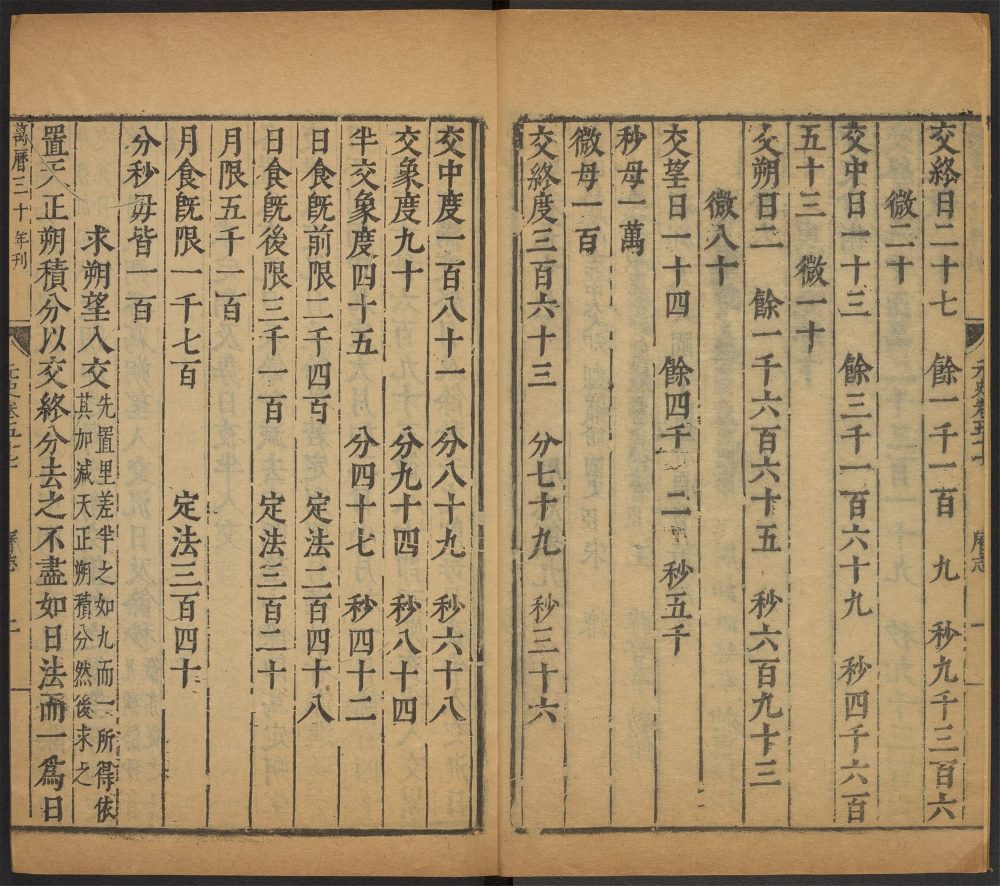 元史卷五十七 曆志 一
交終日二十七 餘一千一百 九 秒九千三百六
微二十
交中日一十三 餘三千一百六十九 秒四千六百
五十三 微一十
交朔日二 餘一千六百六十五 秒六百九十三
微八十
交望日一十四 餘四千 二 秒五千
秒母一萬
微母一百
交終度三百六十三 分七十九 秒三十六
交中度一百八十一 分八十九 秒六十八
交象度九十 分九十四 秒八十四
半交象度四十五 分四十七 秒四十二
日食旣前限二千四百 定法二百四十八
日食旣後限三千一百 定法三百二十
月限五千一百
月食旣限一千七百 定法三百四十
分秒母皆一百
求朔望入交 先置里差半之如九而一所得依
其加減天正朔積分然後求之
置天正朔積分以交終分去之不盡如日法而一爲日
萬曆三十年刊 元史卷五十七 曆志 二